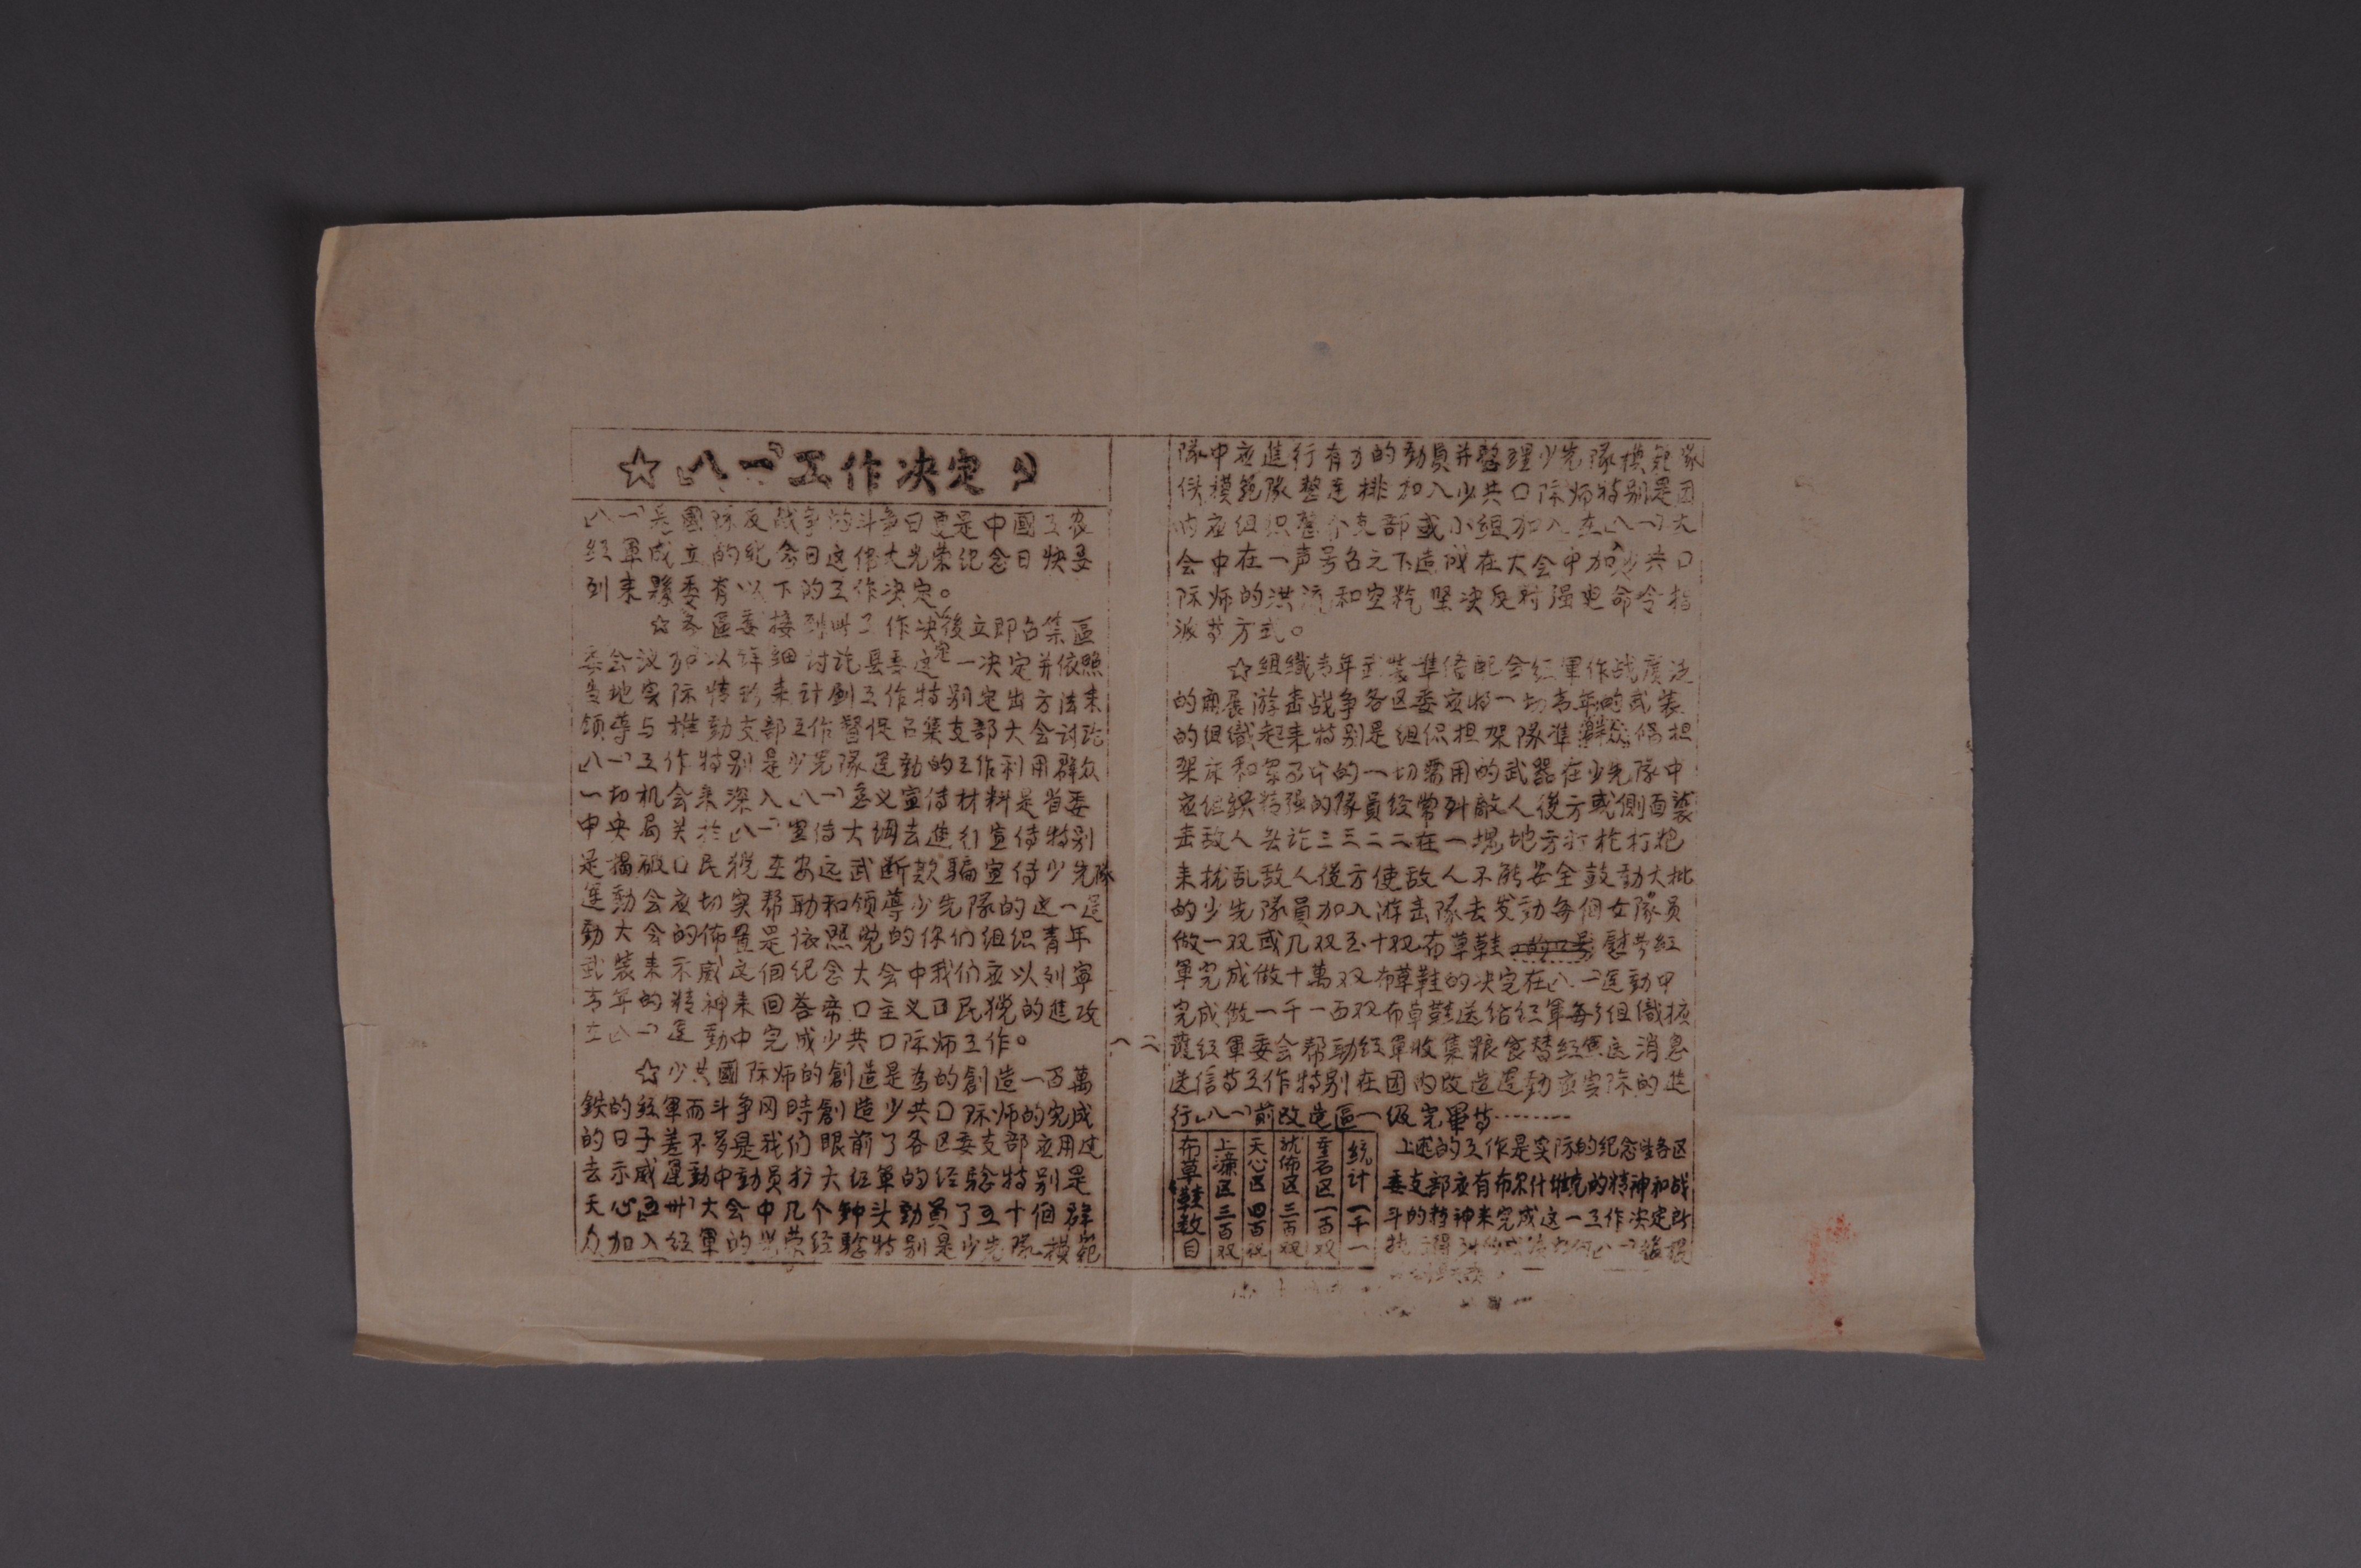 ☆「八一」工作决定
「八一」是國际反战争的斗争日更是中國工农
红軍成立的纪念日这偉大光荣纪念日快要
到来縣委有以下的工作决定。
☆各區委接到此工作决定後立即召集區
委会议加以详细讨论县委这一决定并依照
当地实际情形来计劃工作特别定出方法来
领導与推動支部工作督促召集支部大会讨论
「八一」工作特别是少先隊運動的工作利用群众
一切机会来深入「八一」意义宣传材料是省委
中央局关於「八一」宣传大纲去進行宣传特别
是揭破口民党在安远武断欺騙宣传少先隊
運動会应切实帮助和领導少先隊的这一運
動大会的佈置是依照党的 们组织青年
武装来示威这個纪念大会中我们应以列寧
青年的精神来回答帝口主义口民党的進攻
在「八一」運動中完成少共口际师工作。
☆少共國际师的創造是为的創造一百萬
鉄的红軍而斗争同時創造少共口际师的完成
的日子差不多是我们眼前了各区委支部应用过
去示威運動中動员扩大红軍的经驗特别是
天心「五卅」大会中几个钟头動員了五十個群
众加入红軍的光荣经驗特别是少先隊模範
隊中应進行有力的動員并整理少先隊模範隊
使模範隊整連排加入少共口际师特别是团
内应组织整个支部或小组加入在「八一」大
会中在一声号召之下造成在大会中加入少共口
际师的洪流和空 坚决反对强迫命令指
派等方式。
☆组織青年武装準偹配合红軍作战廣泛
的開展游击战争各区委应将一切青年的武装
的组織起来特别是组织担架隊准 偹担
架床和 的一切需用的武器在少先隊中
应组织精强的隊員经常到敵人後方或側面襲
击敌人无论三三二二在一塊地方打枪打炮
来扰乱敌人後方使敌人不能安全鼓動大批
的少先隊員加入游击隊去发動每個女隊员
做一双或几双至十双布草鞋 慰劳红
軍完成做十萬双布草鞋的决定在「八一」運動中
完成做一千一百双布草鞋送给红軍每 组織擴
護红軍委会帮助红軍收集粮食替红軍送消息
送信等工作特别在团内改造運動应实际的進
行「八一」前改造區一级完畢等………
布草鞋数目
上濂区三百双
天心区四百双
龙佈区三百双
重石区一百双
统计一千一
上述的工作是实际的纪念 各区
委支部应有布尔什维克的精神和战
斗的精神来完成这一工作决定所
得到的成绩 「八一」後報
八 二